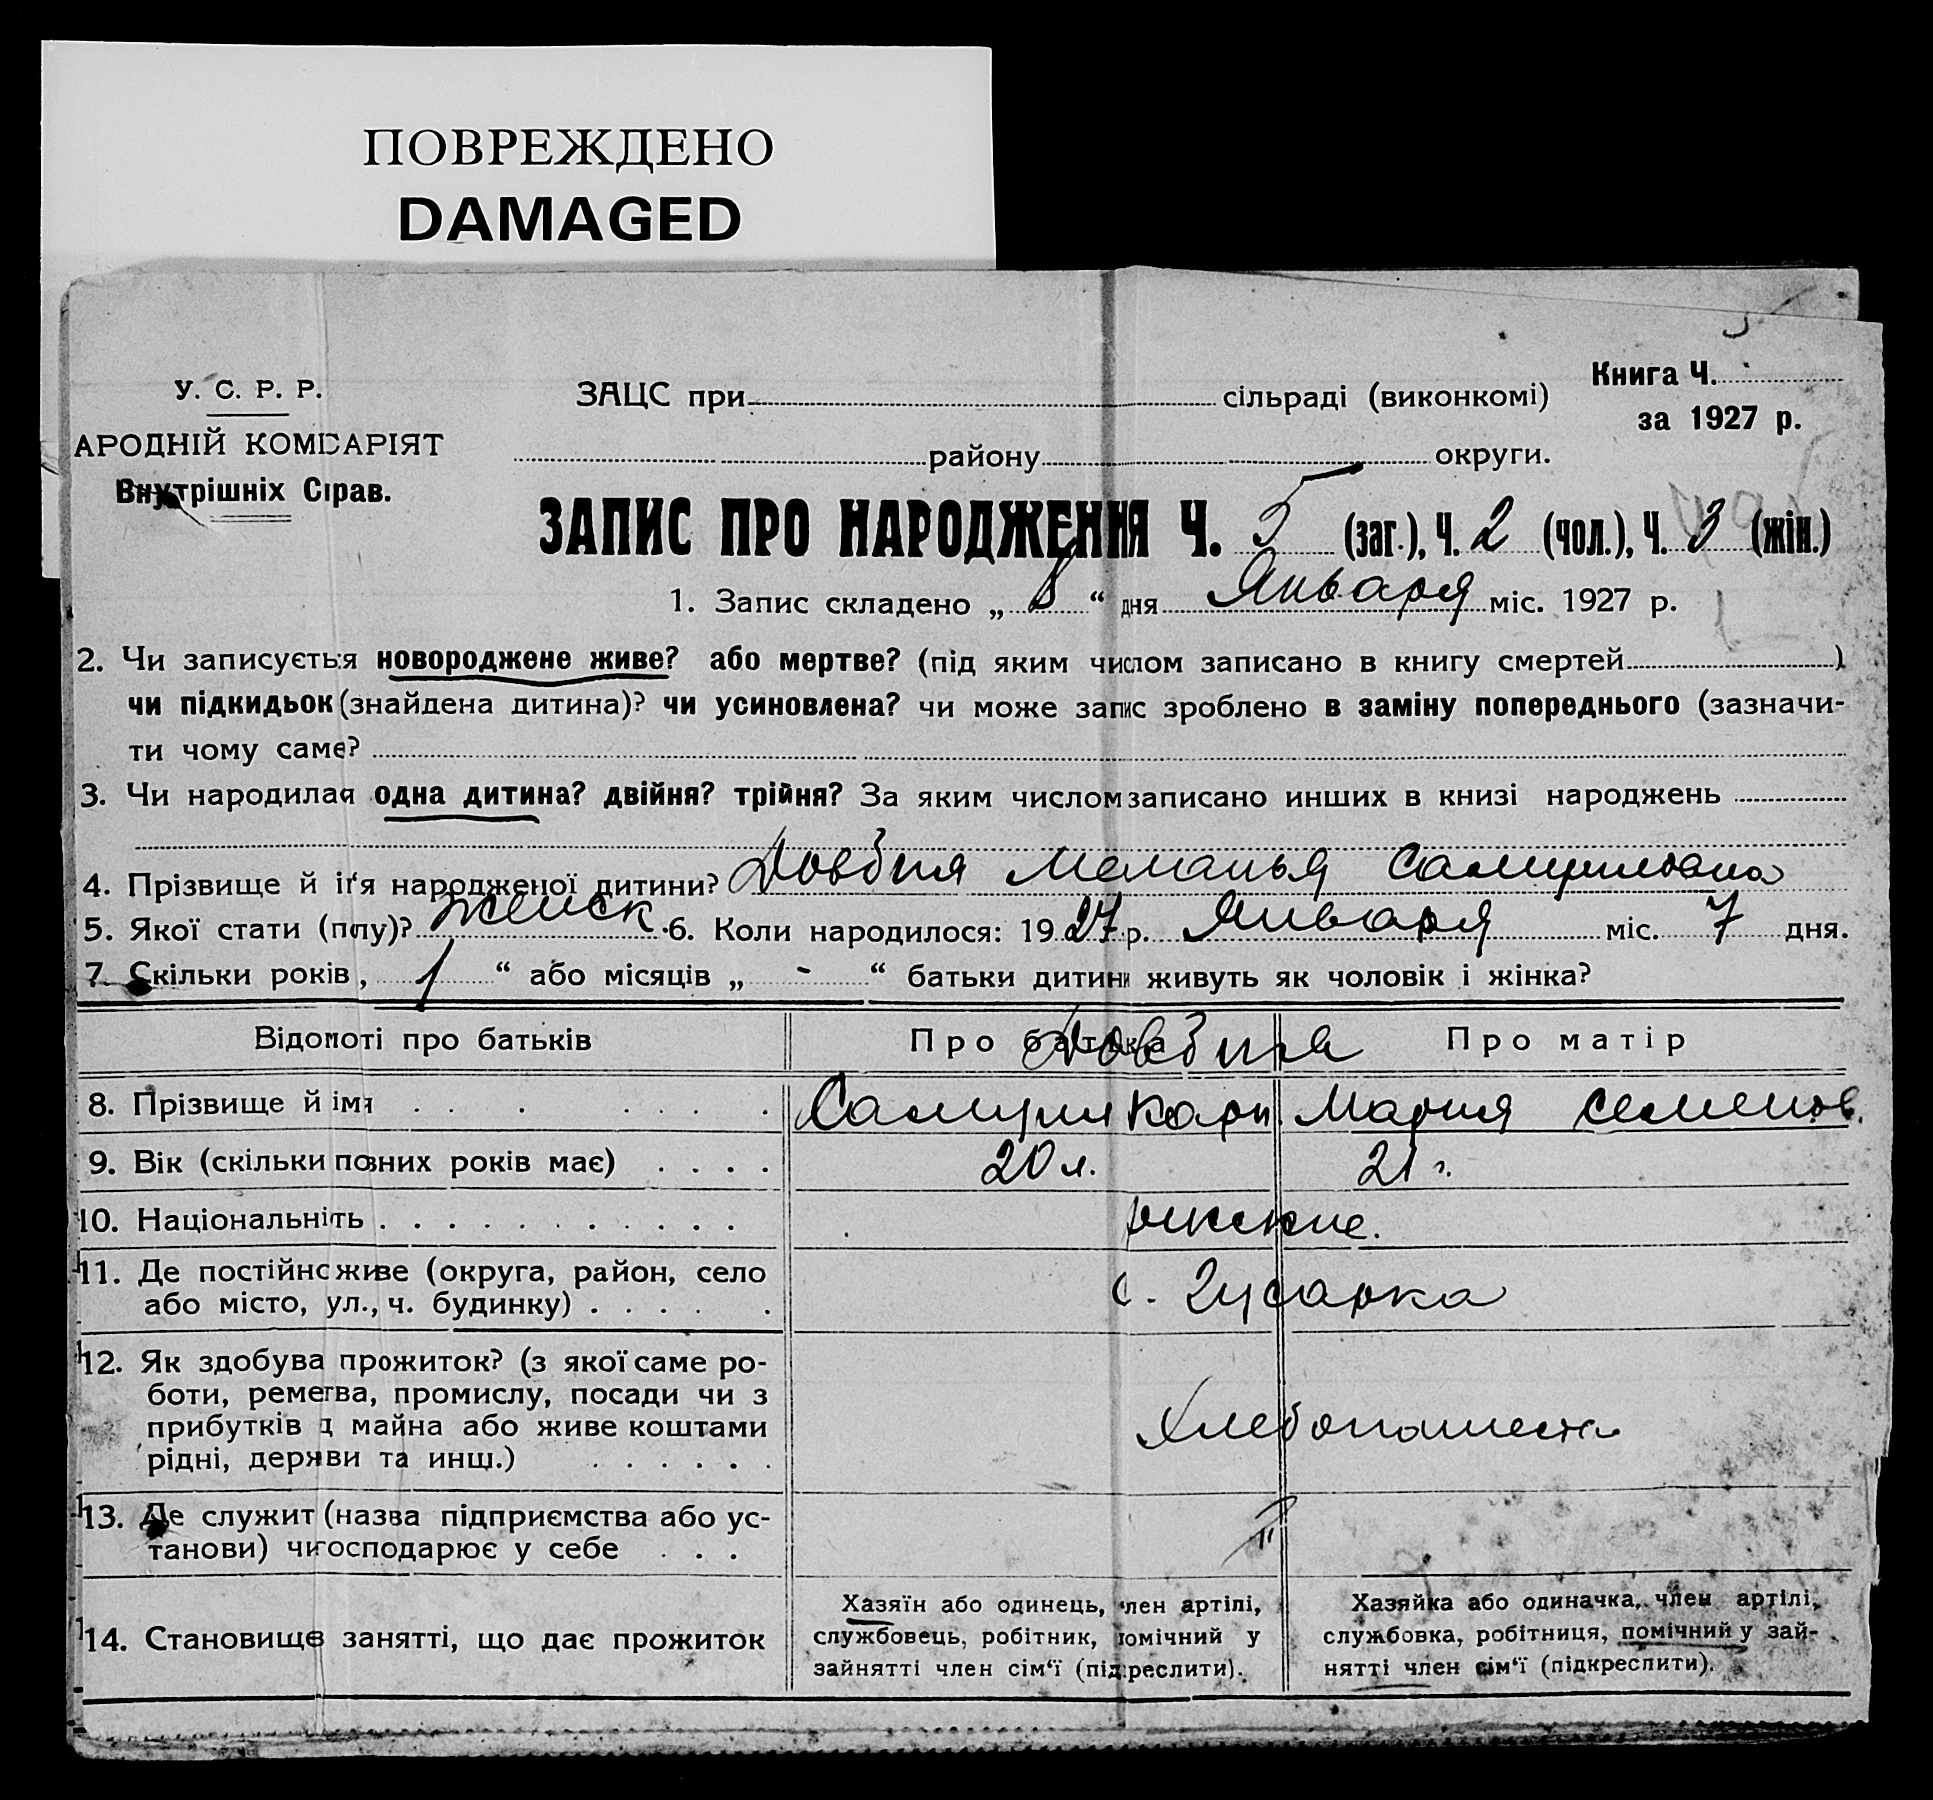 ПОВРЕЖДЕНО
DAMAGED
У. С. Р. Р.
АРОДНІЙ КОМІСАРІЯТ
Внутрішніх Справ.
ЗАЦС при сільраді (виконкомі)
Книга Ч.
за 1927 р.
району округи.
ЗАПИС ПРО НАРОДЖЕННЯ Ч. 5 (заг.), Ч. 2 (чол.), Ч. 3 (жін.)
1. Запис складено „ 8 “ дня Января міс. 1927 р.
2. Чи записується новороджене живе? або мертве? (під яким числом записано в книгу смертей )
чи підкидьок (знайдена дитина)? чи усиновлена? чи може запис зроблено в заміну попереднього (зазначи-
ти чому саме?
3. Чи народилая одна дитина? двійня? трійня? За яким числом записано инших в книзі народжень
4. Прізвище й ім'я народженої дитини? Довбня Меланья Самуиловна
5. Якої стати (полу)? Женск. 6. Коли народилося: 1927 р. Января міс. 7 дня.
7. Скільки років, 1 “ або місяців „ - “ батьки дитини живуть як чоловік і жінка?
Відомоті про батьків Про батька Про матір
Довбня
8. Прізвище й імя Самуил Карп. Мария Семенов.
9. Вік (скільки повних років має) 20 л. 21 г.
10. Національніть русские.
11. Де постійно живе (округа, район, село
або місто, ул., ч. будинку) с. Гусарка
12. Як здобува прожиток? (з якої саме ро-
боти, ремества, промислу, посади чи з
прибутків д майна або живе коштами
рідні, держави та инш.) Хлебопашест
13. Де служит (назва підприємства або ус-
танови) чи господарює у себе "
14. Становище занятті, що дає прожиток
Хазяїн або одинець, член артілі,
службовець, робітник, помічний у
зайнятті член сім'ї (підкреслити).
Хазяйка або одиначка, член артілі,
службовка, робітниця, помічний у зай-
нятті член сім'ї (підкреслити).